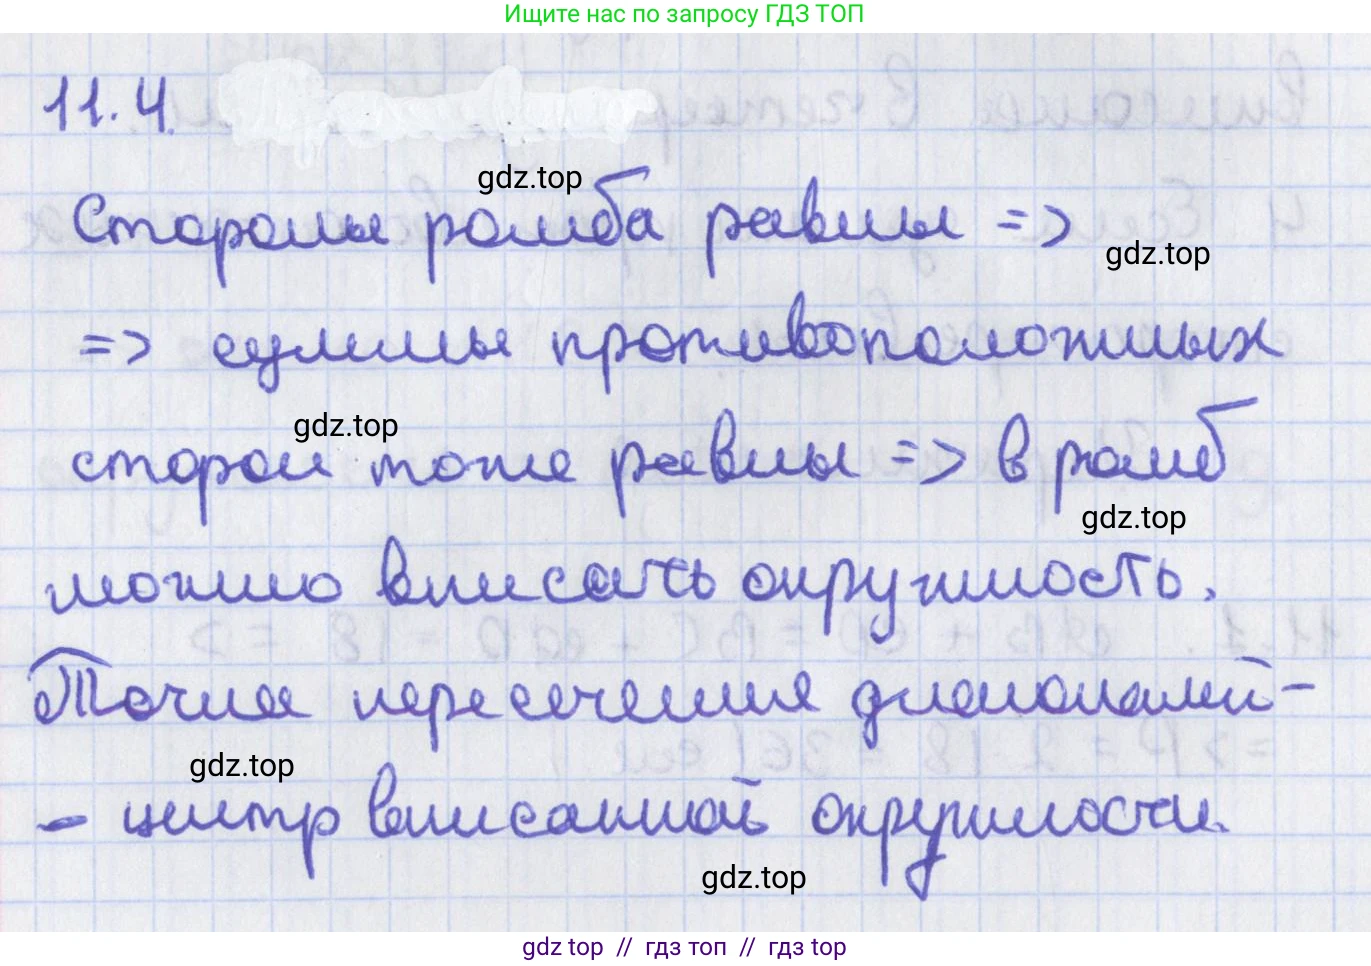 Ищите нас по запросу ГДЗ ТОП
11.4.
gdz.top
Стороны ромба равны =>
gdz.top
=> суммы противоположных
gdz.top
сторон тоже равны => в ромб
gdz.top
можно вписать окружность.
Точка пересечения диагоналей -
gdz.top
- центр вписанной окружности.
gdz.top
gdz top // гдз топ // гдз top